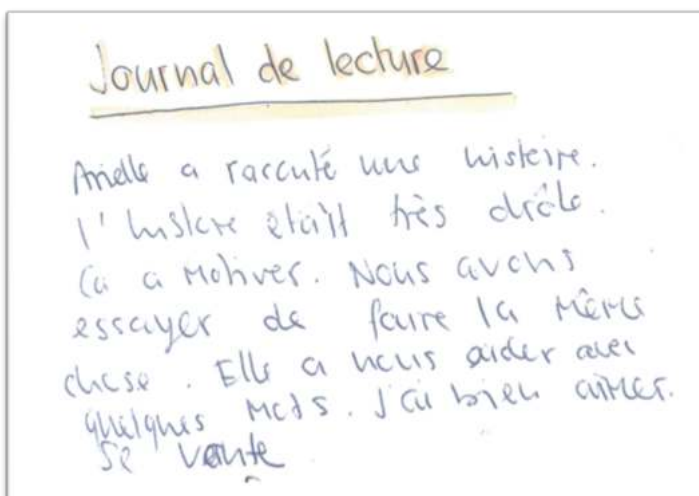 Journal de lecture
Arielle a raconté une histoire.
l'histoire etait très drôle.
Ca a motiver. Nous avons
essayer de faire la même
chose. Elle a nous aider avec
quelques mots. J'ai bien aimer.
Se